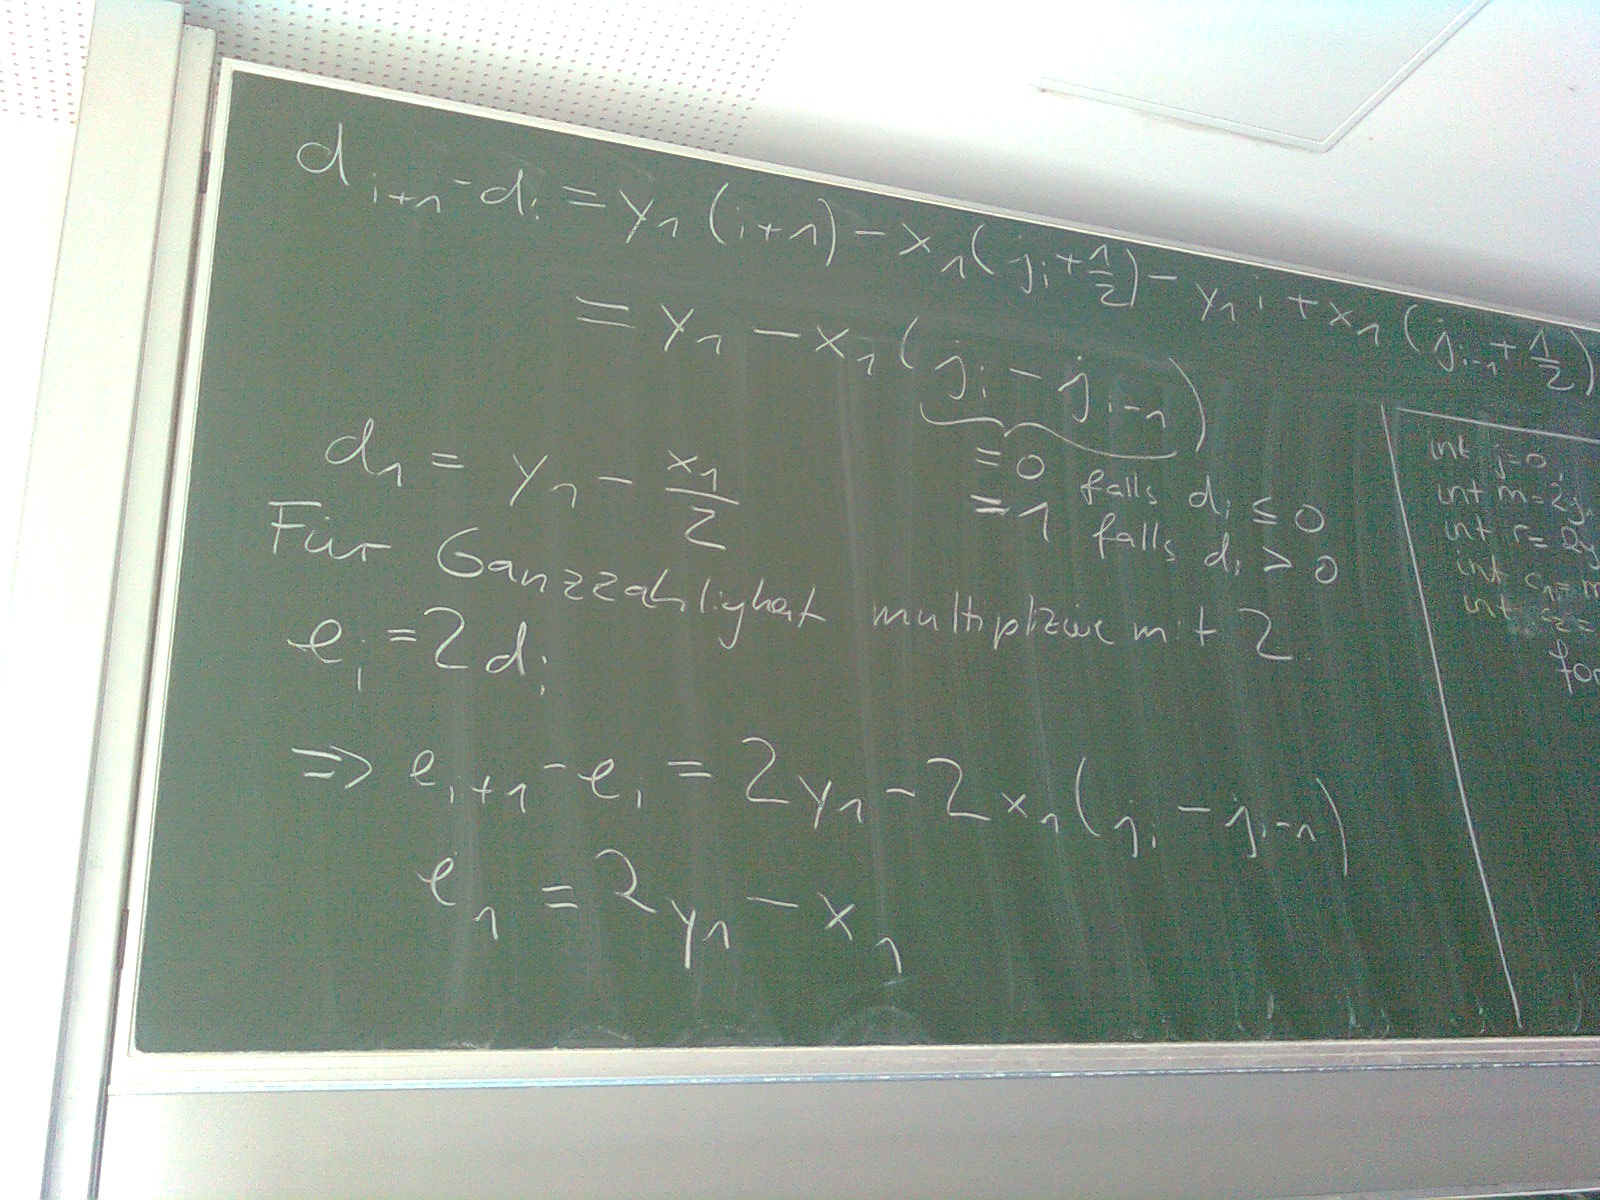 d_{i+1} - d_i = y_1 (i+1) - x_1 (j_i + 1/2) - y_1 i + x_1 (j_{i-1} + 1/2)
= y_1 - x_1 (j_i - j_{i-1})
= 0 falls d_i ≤ 0
= 1 falls d_i > 0
d_1 = y_1 - x_1/2
Für Ganzzahligkeit multipliziere mit 2
e_i = 2 d_i
⇒ e_{i+1} - e_i = 2 y_1 - 2 x_1 (j_i - j_{i-1})
e_1 = 2 y_1 - x_1
int j=0;
int m=2y
int r=2y
int c_1=m
int c_2=
for